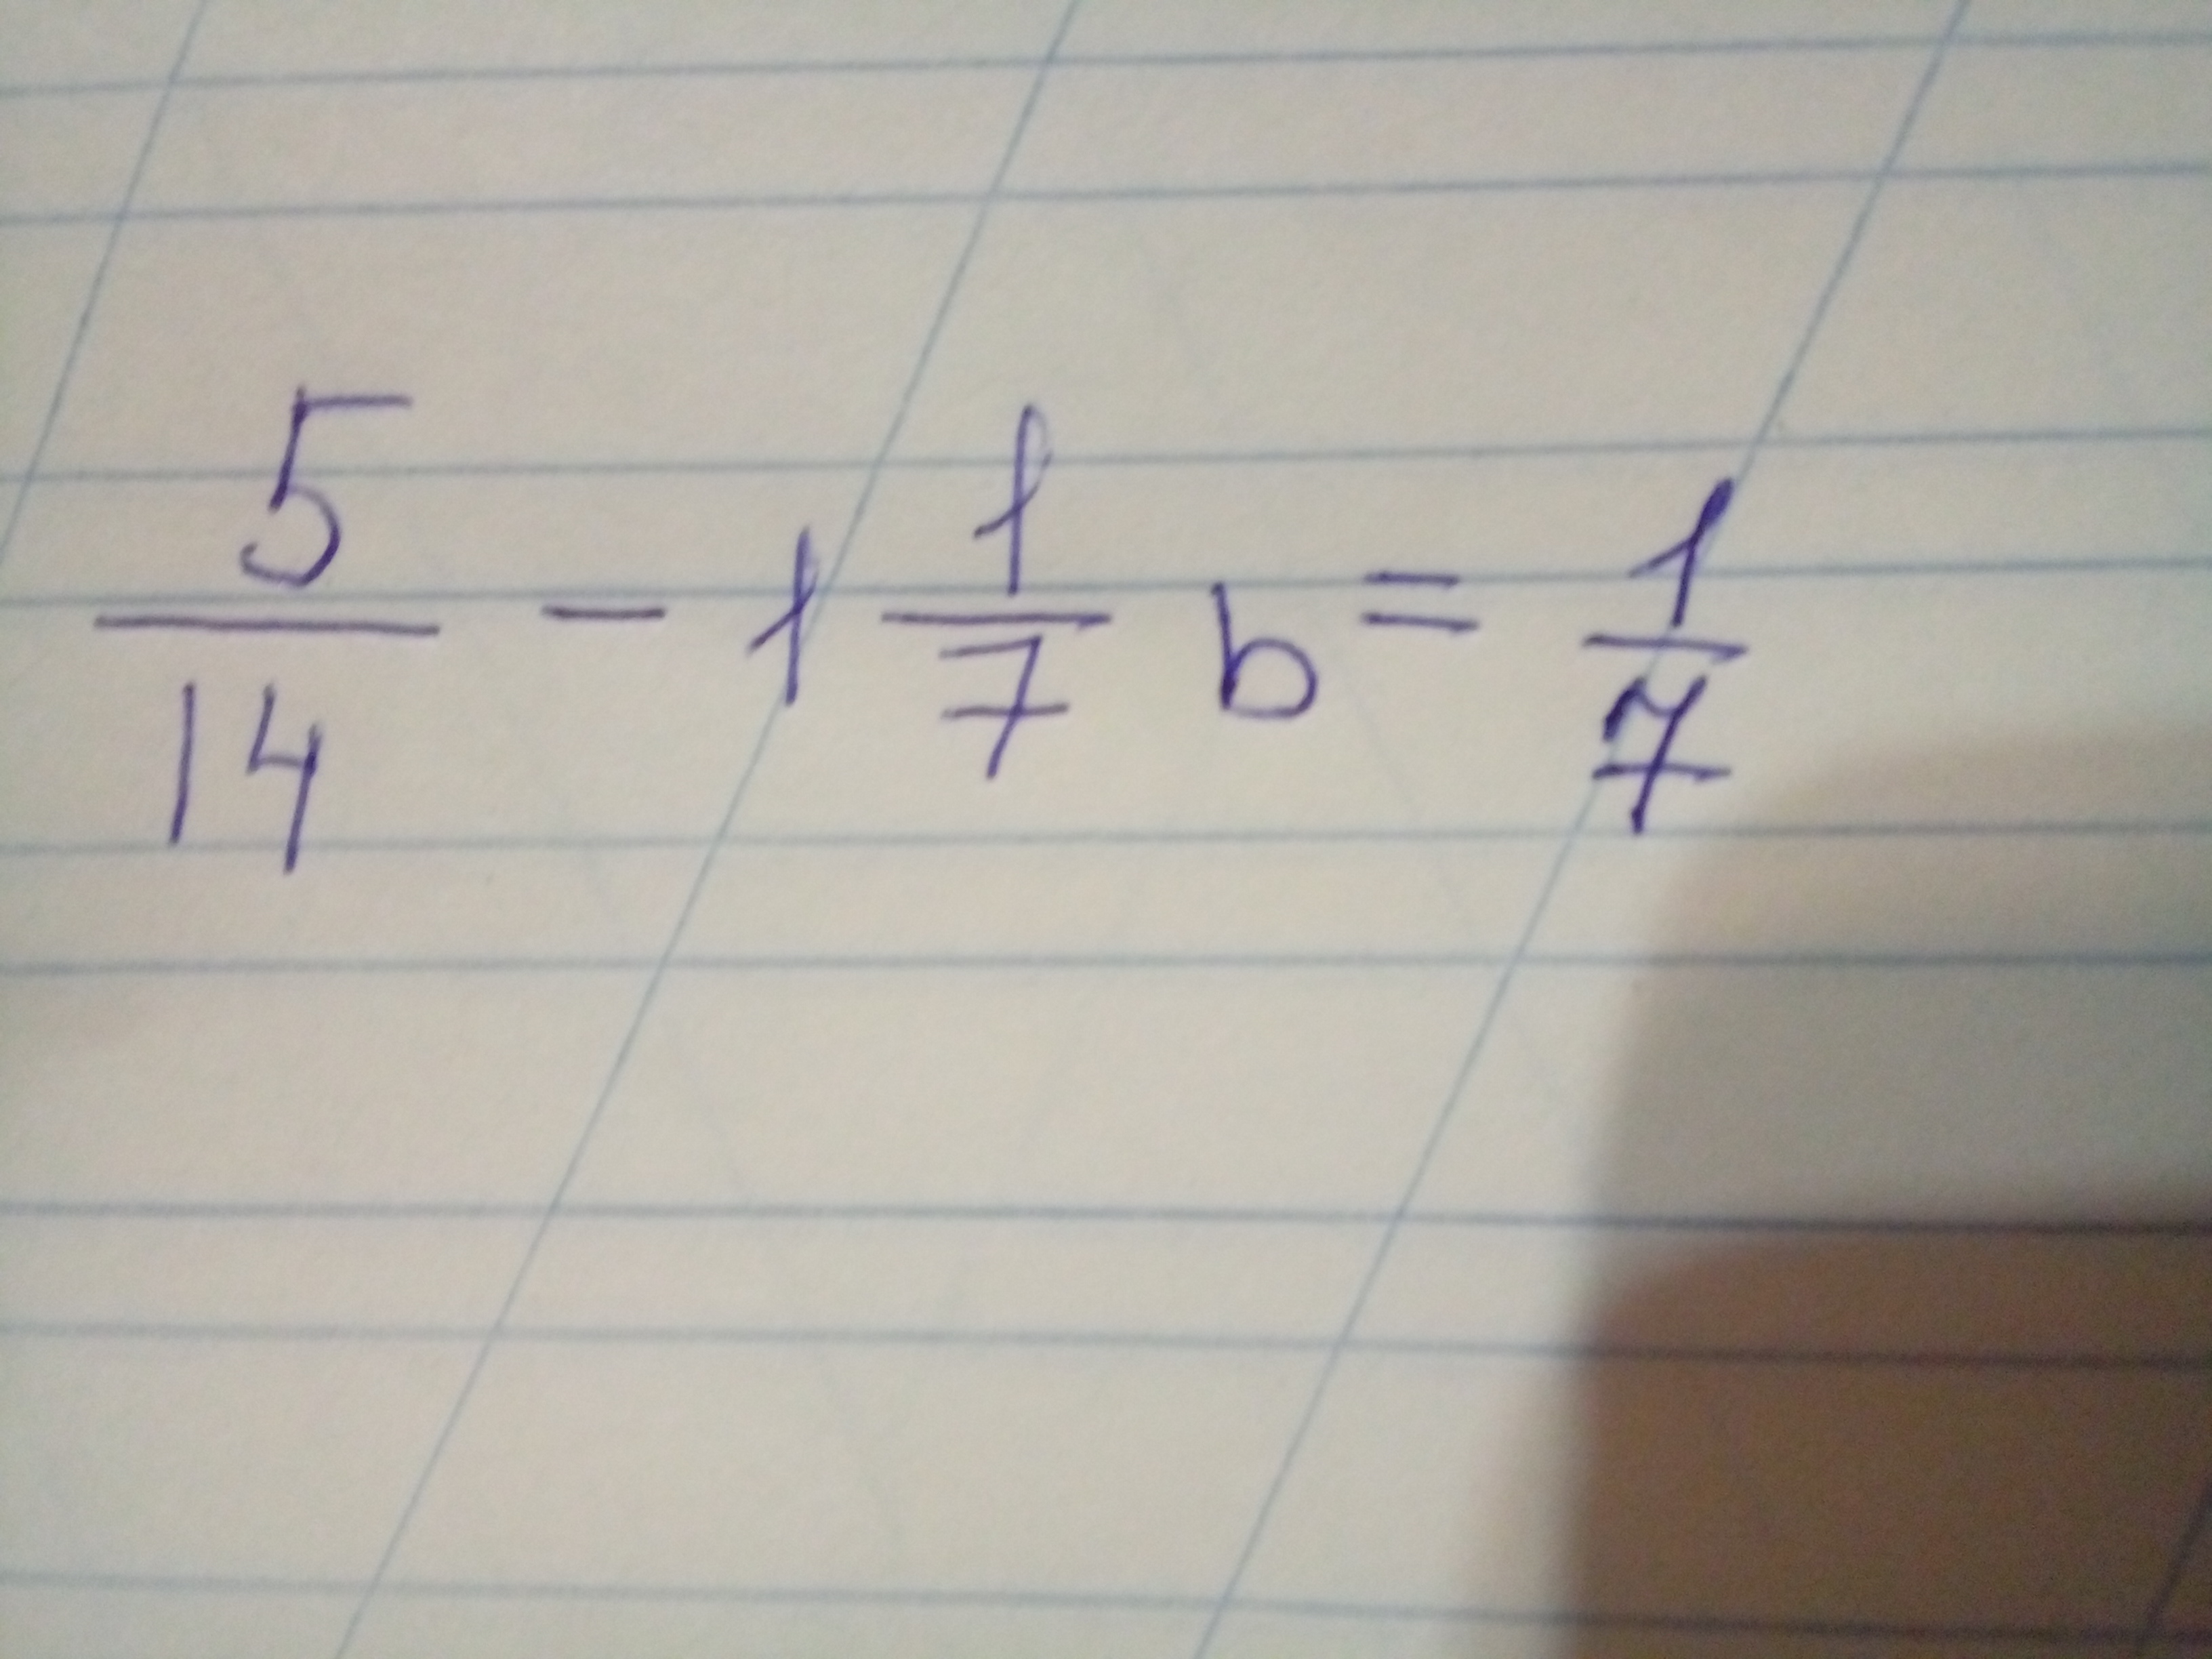 5/14 - 1 1/7 b = 1/7